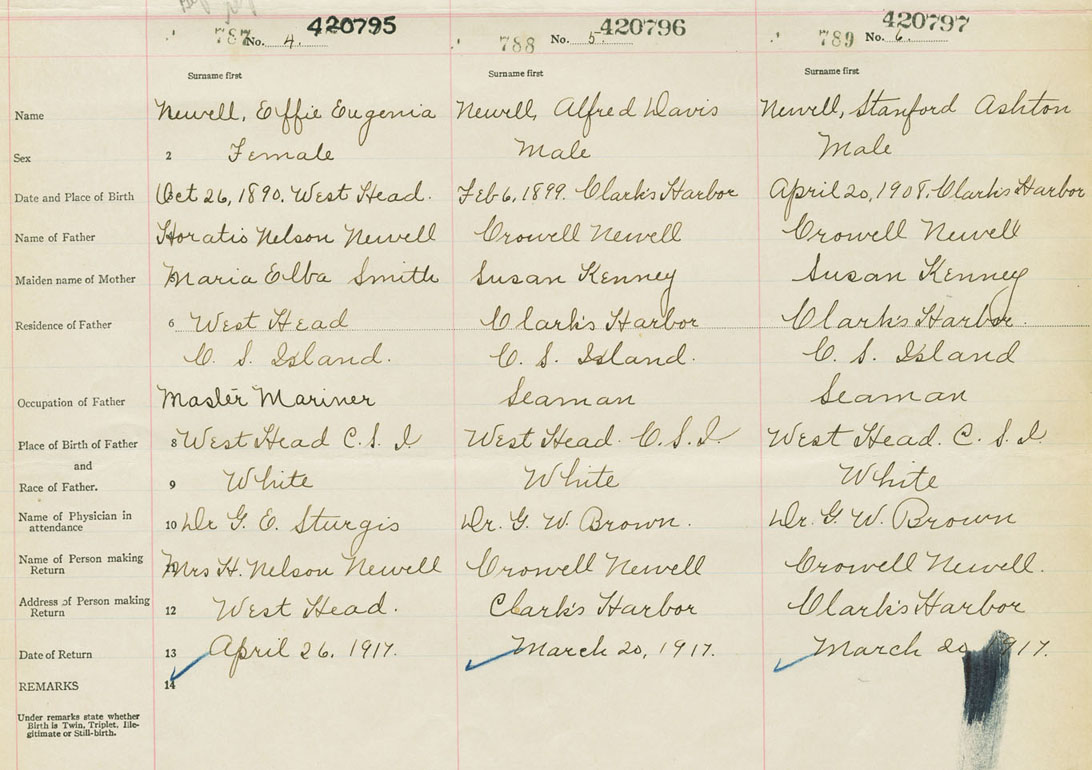 420795 420796 420797
787 No. 4. 788 No. 5. 789 No. 6.
Surname first Surname first Surname first
Name Newell, Effie Eugenia Newell, Alfred Davis Newell, Stanford Ashton
Sex 2 Female Male Male
Date and Place of Birth Oct 26, 1890. West Head. Feb 6, 1899. Clark's Harbor April 20, 1908. Clark's Harbor
Name of Father Horatio Nelson Newell Crowell Newell Crowell Newell
Maiden name of Mother Maria Elba Smith Susan Kenney Susan Kenney
Residence of Father 6 West Head Clark's Harbor Clark's Harbor.
C. S. Island. C. S. Island. C. S. Island
Occupation of Father Master Mariner Seaman Seaman
Place of Birth of Father 8 West Head C. S. I West Head. C. S. I. West Head. C. S. I.
and
Race of Father. 9 White White White
Name of Physician in
attendance 10 Dr G. E. Sturgis Dr. G. W. Brown. Dr. G. W. Brown
Name of Person making
Return 11 Mrs H. Nelson Newell Crowell Newell Crowell Newell.
Address of Person making
Return 12 West Head. Clark's Harbor Clark's Harbor
Date of Return 13 April 26, 1917. March 20, 1917. March 20, 1917.
REMARKS 14
Under remarks state whether
Birth is Twin, Triplet, Ille-
gitimate or Still-birth.